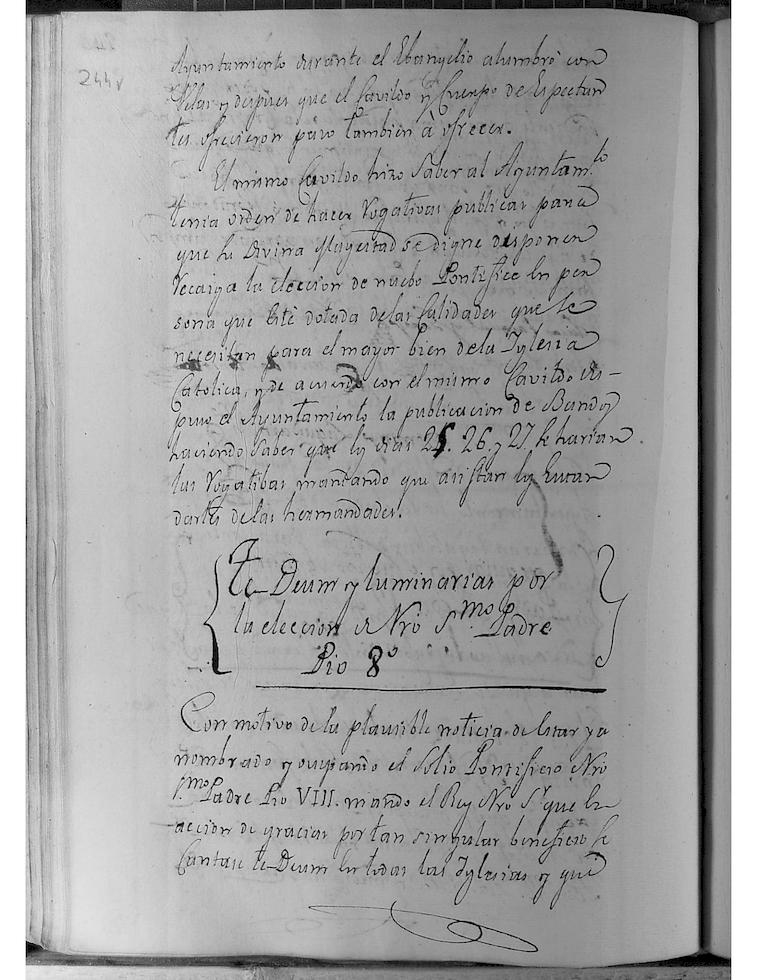 244v
Ayuntamiento durante el Ebangelio alumbró con
Velas y despues que el Cavildo y Cuerpo de Espectan
tes ofrecieron pasó tambien à ofrecer.
El mismo Cavildo hizo Saber al Ayuntam.to
tenia orden de hacer Rogativas publicas para
que Su Divina Magestad se digne disponer
recaiga la eleccion de nuebo Pontifice en per
sona que Esté dotada de las Calidades que se
necesitan para el mayor bien de la Iglesia
Catolica, y de acuerdo con el mismo Cavildo dis-
puso el Ayuntamiento la publicacion de Bando
haciendo Saber que los dias 25. 26. y 27 se harian
las Rogatibas mandando que asistan los Estan
dartes de las hermandades.
Te-Deum y luminarias por
la eleccion de Nrò S.mo Padre
Pio 8º
Con motivo de la plausible noticia de Estar ya
nombrado y ocupando el Solio Pontificio Nrò
S.mo Padre Pio VIII. mandó el Rey Nrò S.r que en
accion de gracias por tan singular beneficio se
Cantase te-Deum en todas las Iglesias y que